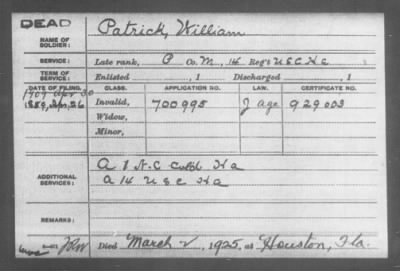 DEAD
NAME OF SOLDIER: Patrick, William
SERVICE: Late rank, P Co. M, 14 Reg't U S C H A
TERM OF SERVICE: Enlisted , 1 Discharged , 1
DATE OF FILING. CLASS. APPLICATION NO. LAW. CERTIFICATE NO.
1907 Apr 30
1889, Apr. 26 Invalid, 700995 J age 929003
Widow,
Minor,
ADDITIONAL SERVICES: A 1 N.C Cold Ha
A 14 U S C Ha
REMARKS:
Died March 2, 1925, at Houston, Fla.